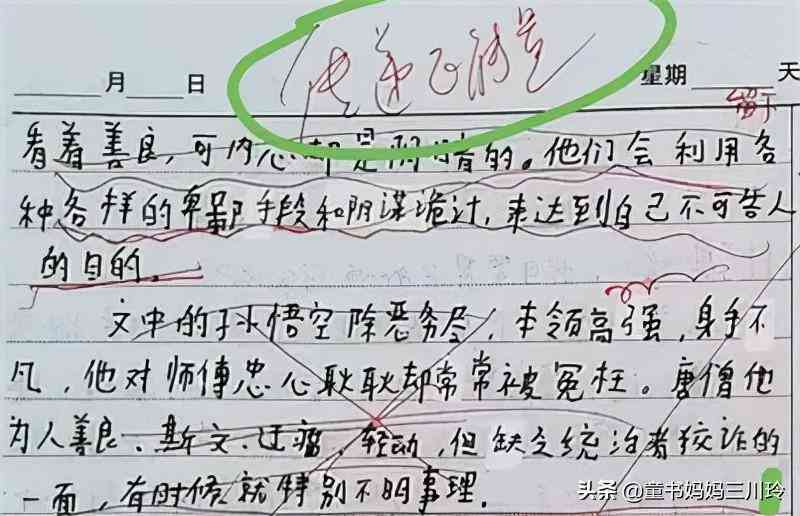 月 日 传递正能量 星期 天
看着善良,可内心却是阴暗的。他们会利用各
种各样的卑鄙手段和阴谋诡计,来达到自己不可告人
的目的。
文中的孙悟空除恶务尽,本领高强,身手不
凡,他对师傅忠心耿耿却常常被冤枉。唐僧他
为人善良、斯文、迂腐、轻动,但缺乏统治者狡诈的
一面,有时候就特别不明事理。
头条@董书妈妈三川玲